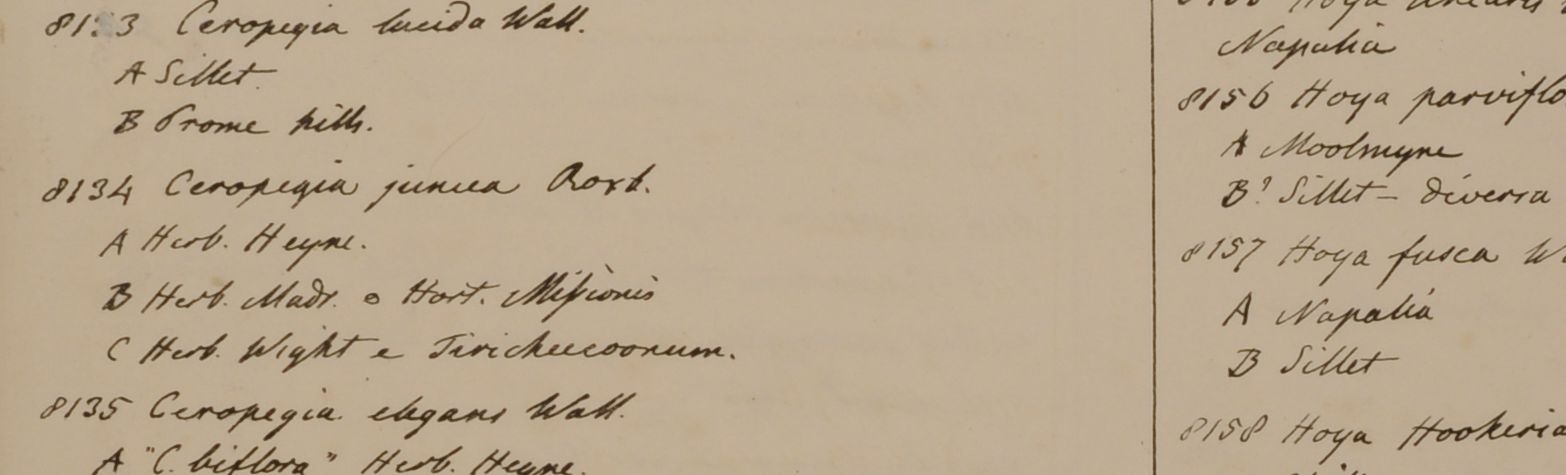 8133 Ceropegia lucida Wall.
A Sillet.
B Prome hills.
8134 Ceropegia juncea Roxb.
A Herb. Heyne.
B Herb. Madr. e Hort. Missionis
C Herb. Wight e
8135 Ceropegia elegans Wall.
A "C. biflora" Herb. Heyne.
Hoya linearis
Napalia
8156 Hoya parviflo
A Moolmyne
B? Sillet – diversa
8157 Hoya fusca W
A Napalia
B Sillet
8158 Hoya Hookeria